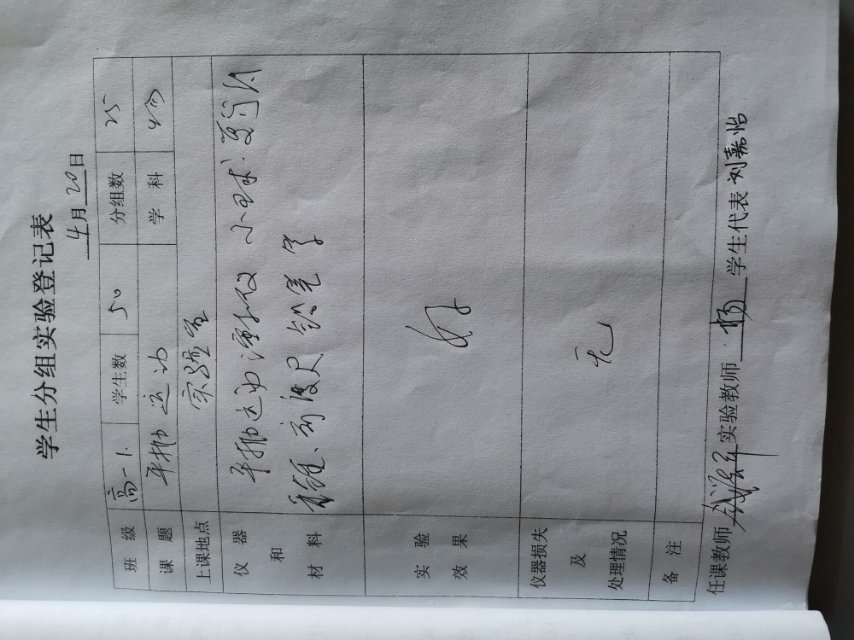 学生分组实验登记表
4月20日
班级 高一1. 学生数 50 分组数 25
课题 平抛运动 学科 物
上课地点 实验室
仪器和材料 平抛运动演示仪 小球.复写纸
刻度尺 铅笔 等
实验效果 好
仪器损失及处理情况 无
备注
任课教师 实验教师 杨 学生代表 刘嘉怡